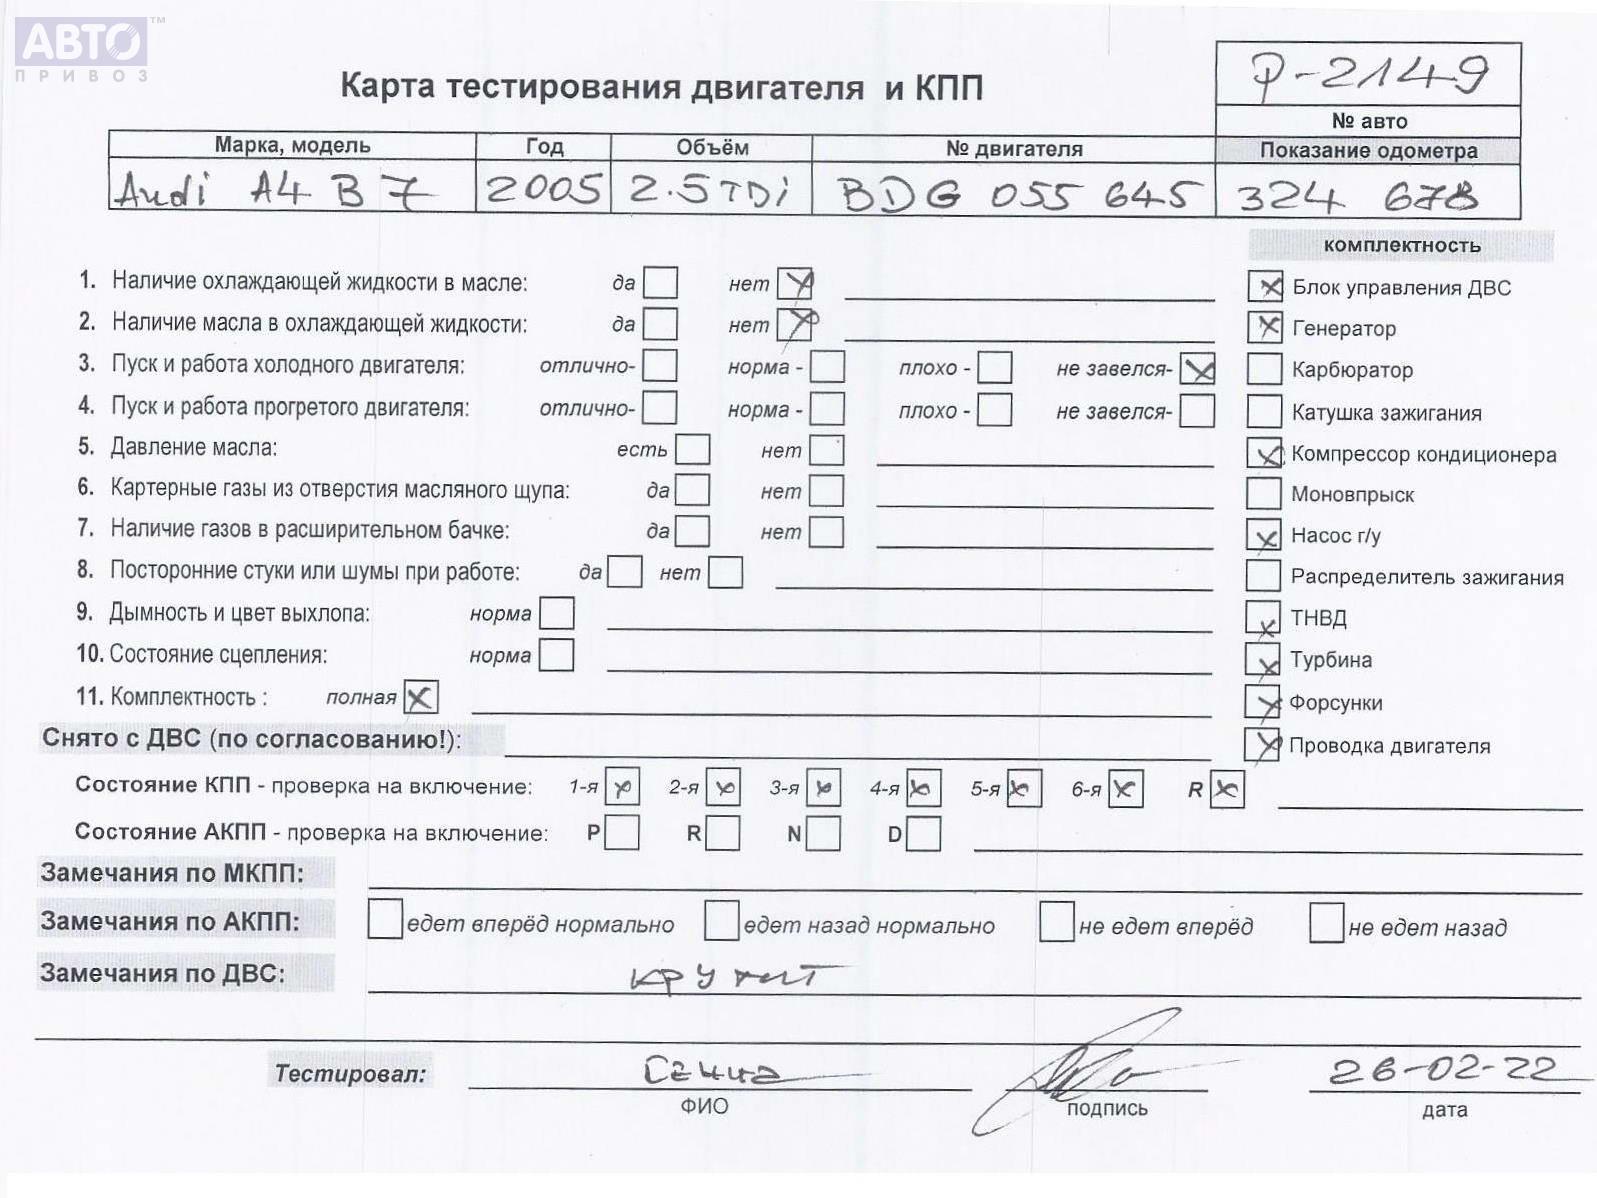 АВТО™
ПРИВОЗ
Карта тестирования двигателя и КПП
Р-2149
№ авто
Марка, модель Год Объём № двигателя Показание одометра
Audi A4 B7 2005 2.5TDi BDG 055 645 324 678
комплектность
1. Наличие охлаждающей жидкости в масле: да нет
2. Наличие масла в охлаждающей жидкости: да нет
3. Пуск и работа холодного двигателя: отлично- норма - плохо - не завелся-
4. Пуск и работа прогретого двигателя: отлично- норма - плохо - не завелся-
5. Давление масла: есть нет
6. Картерные газы из отверстия масляного щупа: да нет
7. Наличие газов в расширительном бачке: да нет
8. Посторонние стуки или шумы при работе: да нет
9. Дымность и цвет выхлопа: норма
10. Состояние сцепления: норма
11. Комплектность : полная
Блок управления ДВС
Генератор
Карбюратор
Катушка зажигания
Компрессор кондиционера
Моновпрыск
Насос г/у
Распределитель зажигания
ТНВД
Турбина
Форсунки
Проводка двигателя
Снято с ДВС (по согласованию!):
Состояние КПП - проверка на включение: 1-я 2-я 3-я 4-я 5-я 6-я R
Состояние АКПП - проверка на включение: P R N D
Замечания по МКПП:
Замечания по АКПП: едет вперёд нормально едет назад нормально не едет вперёд не едет назад
Замечания по ДВС: крутит
Тестировал: 26-02-22
ФИО подпись дата